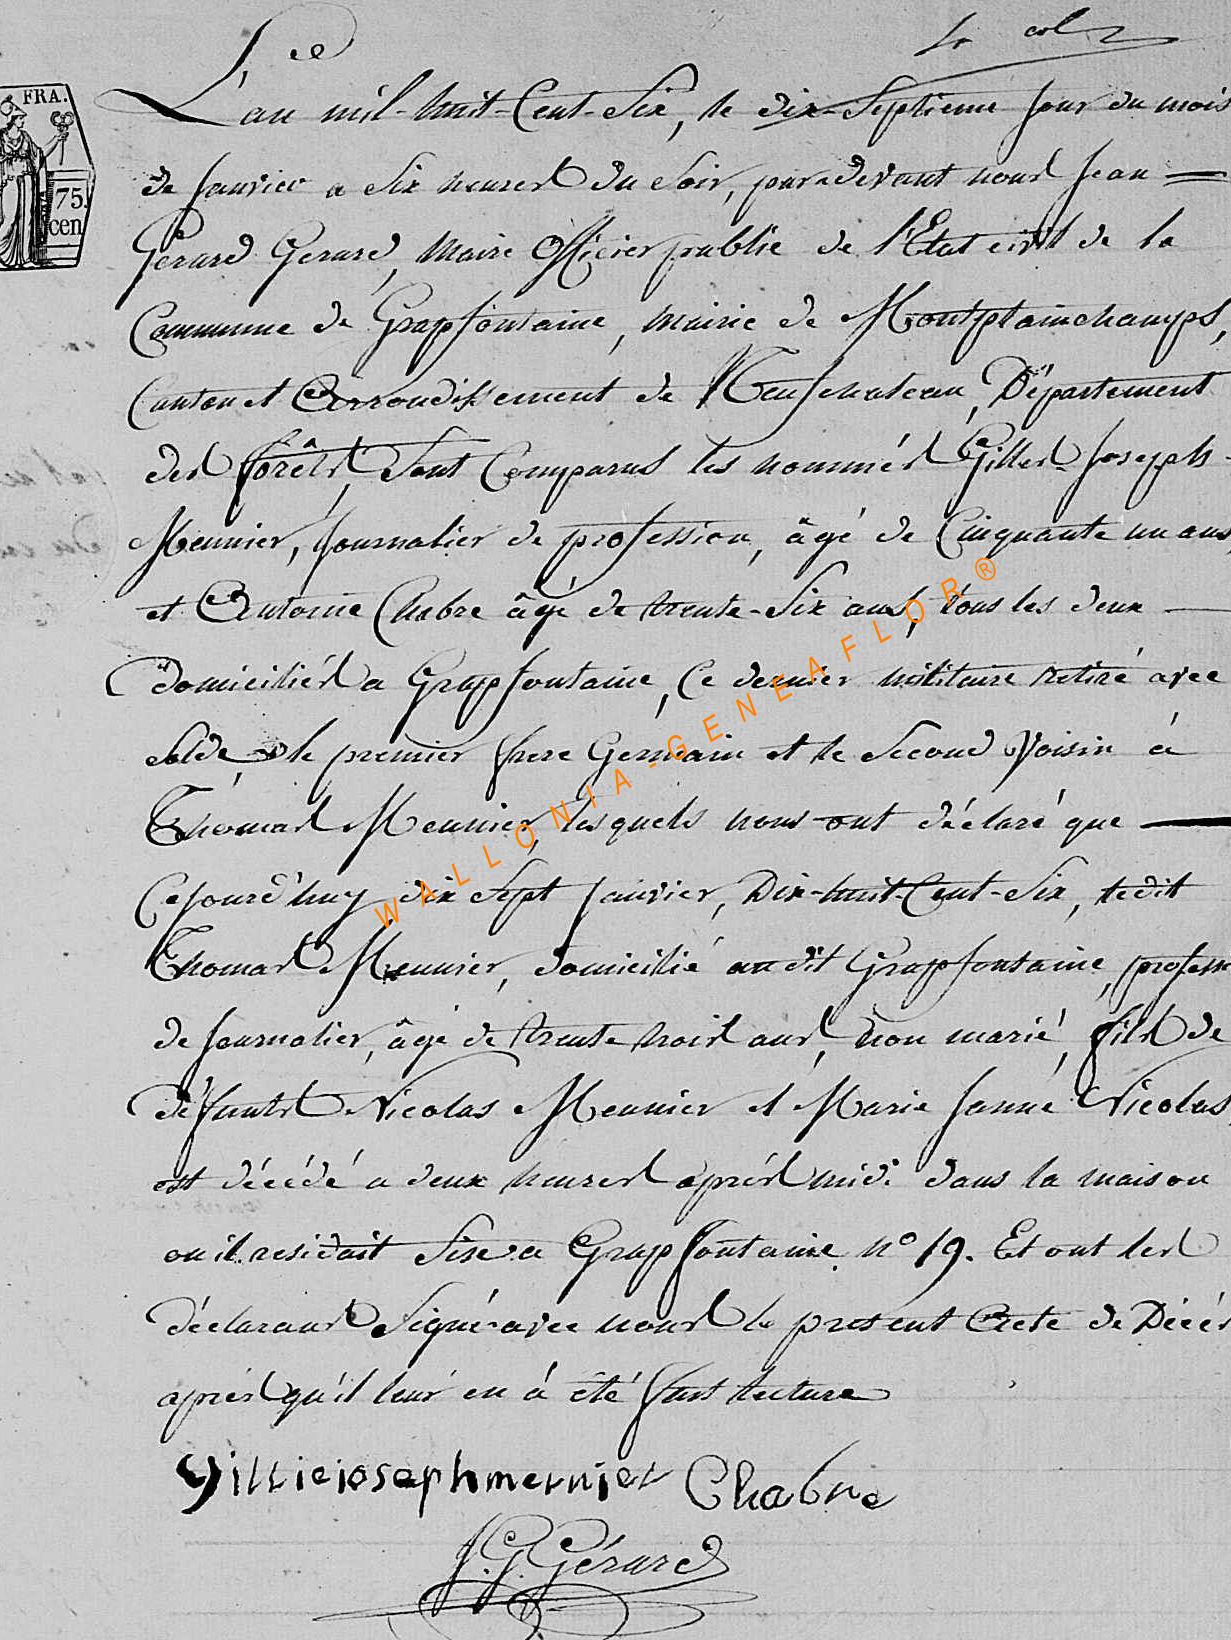 L'an mil-huit-Cent-Six, le dix-Septieme jour du mois
de Janvier a Six heures du Soir, pardevant nous Jean
FRA.
75.
cen
Gerard Gerard, Maire Officier public de l'Etat civil de la
Commune de Grapfontaine, mairie de Montplainchamps,
Canton et Arrondissement de Neufchateau, Département
des forêts, Sont Comparus les nommés Gilles Joseph
Meunier, Journalier de profession, âgé de Cinquante un ans,
et Antoine Chabre âgé de trente-Six ans, tous les deux
domiciliés a Grapfontaine, Ce dernier militaire retiré avec
Solde, le premier frere Germain et le Second Voisin à
Thomas Meunier, lesquels nous ont déclaré que
Cejourd'huy dix Sept Janvier, Dix-huit-Cent-Six, ledit
Thomas Meunier, domicilié au dit Grapfontaine, professn
de Journalier, âgé de trente trois ans, non marié, fils de
défunts Nicolas Meunier et Marie Janne Nicolas
est décédé a deux heures aprés midi dans la maison
ou il residait Sise a Grapfontaine n° 19. Et ont les
déclarans Signé avec nous le present Acte de Décés
aprés qu'il leur en à été fait lecture
Gilliejosephmeunier Chabre
J. G. Gérard
WALLONIA-GENEAFLOR®